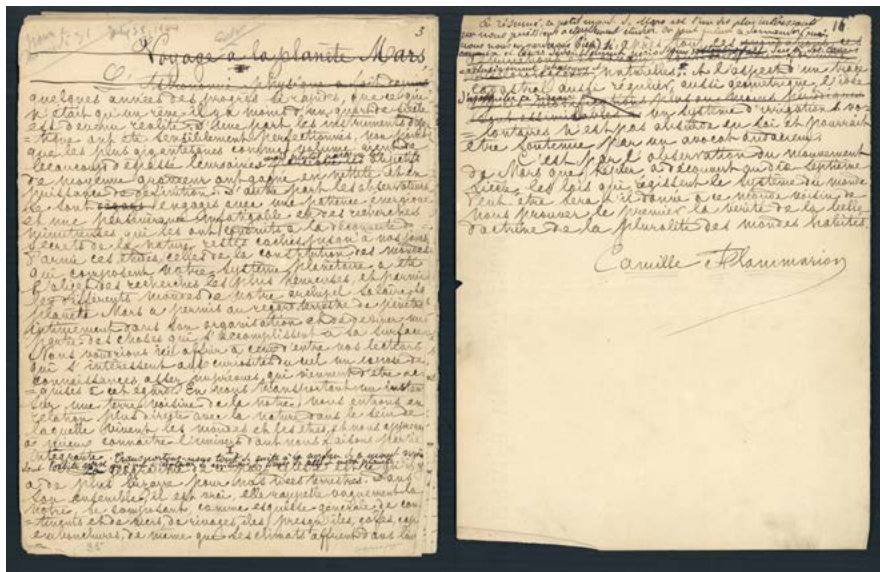 3
Voyage à la planète Mars
L'Astronomie physique a fait depuis
quelques années des progrès si rapides, que ce qui
n'était qu'un rêve il y a moins d'un quart de siècle
est devenu réalité. D'une part les instruments d'op-
tique ont été sensiblement perfectionnés, non parce
que les plus gigantesques comme volume aient de
beaucoup dépassé leurs aînés, mais parce que les objectifs
de moyenne grandeur ont gagné en netteté et en
puissance de définition. D'autre part les observateurs
se sont engagés avec une patience énergique
et une persévérance infatigable en des recherches
minutieuses qui les ont conduits à la découverte de
secrets de la nature restés cachés jusqu'à nos jours.
Parmi ces études, celles de la constitution des mondes
qui composent notre système planétaire a été
l'objet des recherches les plus heureuses, et parmi
les différents mondes de notre archipel solaire, la
planète Mars a permis au regard terrestre de pénétrer
intimement dans son organisation et de deviner une
partie des choses qui s'accomplissent à sa surface.
Nous voudrions ici offrir à ceux d'entre nos lecteurs
qui s'intéressent aux curiosités du ciel un exposé de
connaissances assez imprévues qui viennent d'être ac-
quises à cet égard. En nous transportant un instant
sur une terre voisine de la nôtre, nous entrons en
relation plus directe avec la nature dans le sein de
laquelle vivent les mondes et les êtres, et nous apprenons
à mieux connaître l'univers dont nous faisons partie
intégrante.
I
Transportons-nous tout de suite
a de plus bizarre pour nos idées terrestres. Dans
son ensemble, il est vrai, elle rappelle vaguement la
nôtre, se composant, comme esquisse générale, de con-
tinents et de mers, de rivages, îles, presqu'îles, golfes, caps,
embouchures, de même que ses climats offrent dans leur
35
16
En résumé, ce petit monde de Mars est l'un des plus intéressants
que nous puissions actuellement étudier. On peut
naturelles. À l'aspect d'un tracé
cadastral aussi régulier, aussi géométrique, l'idée
d'un système d'irrigation si vo-
lontaires n'est pas absurde en soi et pourrait
être soutenue par un avocat audacieux.
C'est par l'observation du mouvement
de Mars que Képler a découvert au dix-septième
siècle les lois qui régissent le système du monde.
Peut-être sera-t-il donné à ce monde voisin de
nous prouver le premier la vérité de la belle
doctrine de la pluralité des mondes habités.
Camille Flammarion